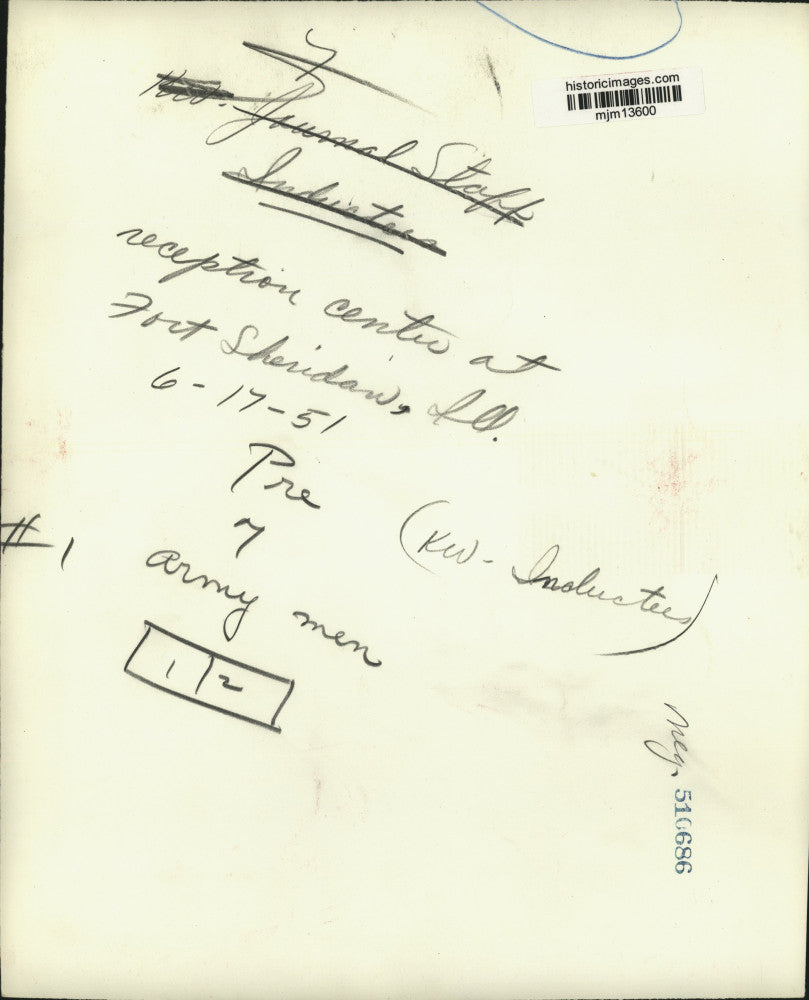 historicimages.com
mjm13600
Journal Staff
Inductees
reception center at
Fort Sheridan, Ill.
6-17-51
Pre
7
army men
1 2
#1
(KW- Inductees)
Neg. 510686